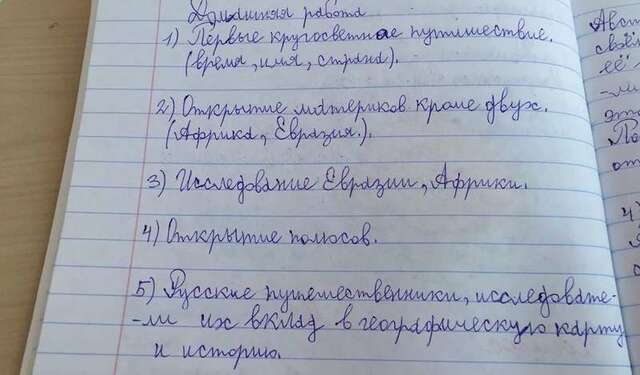 Домашняя работа
1) Первые кругосветное путишествие.
(время, имя, страна).
2) Открытие материков кроме двух.
(Африка, Евразия.).
3) Исследование Евразии, Африки.
4) Открытие полюсов.
5) Русские путешественники, исследовате-
-ли их вклад в географическую карту
и историю.
Авст
свои
её
-ли
это
По
от
4)